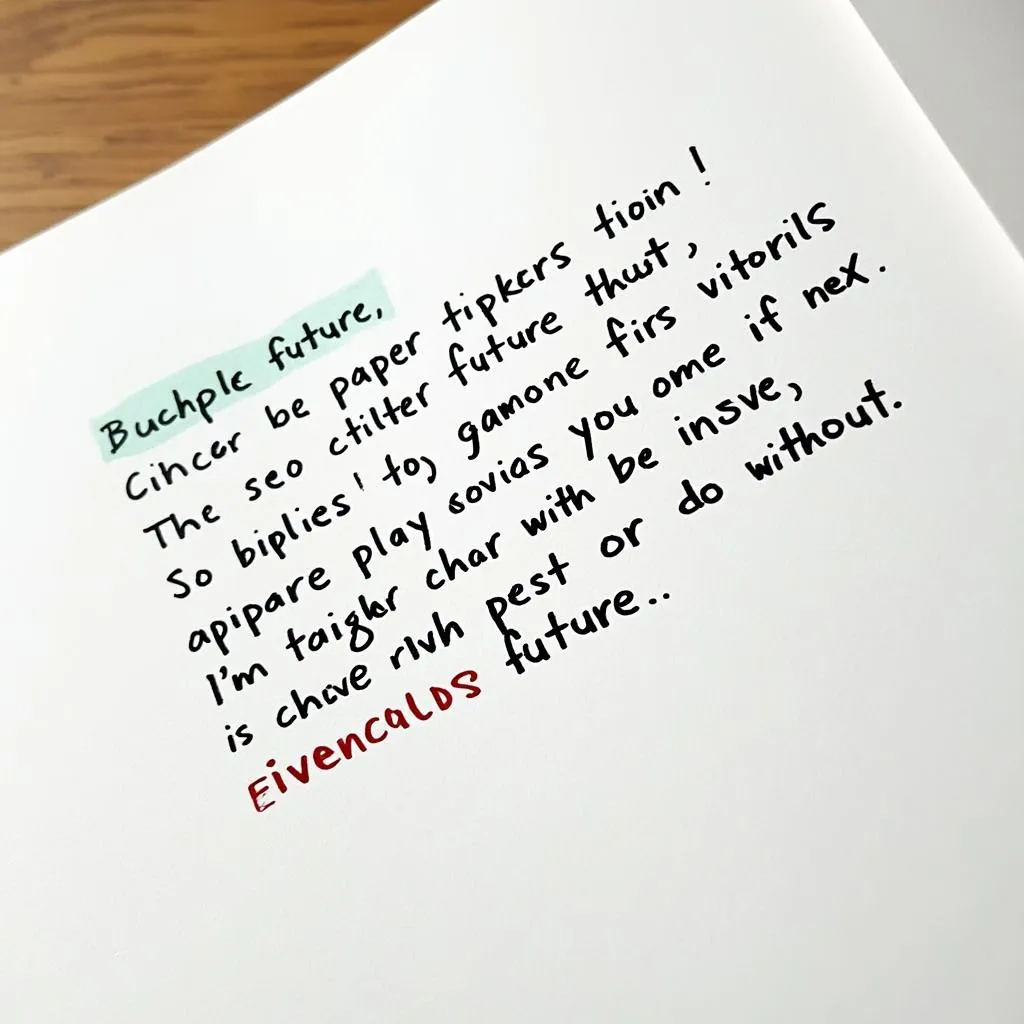 Buchplc future,
Cihcer be paper tipkcrs tioin !
The seo ctilter future thust,
So biplies' to, gamone firs vitorils
apipare play sovias you ome if nex.
I'm taigkr char with be insve,
is chcve rlvh pest or do without.
Eivencalds future..